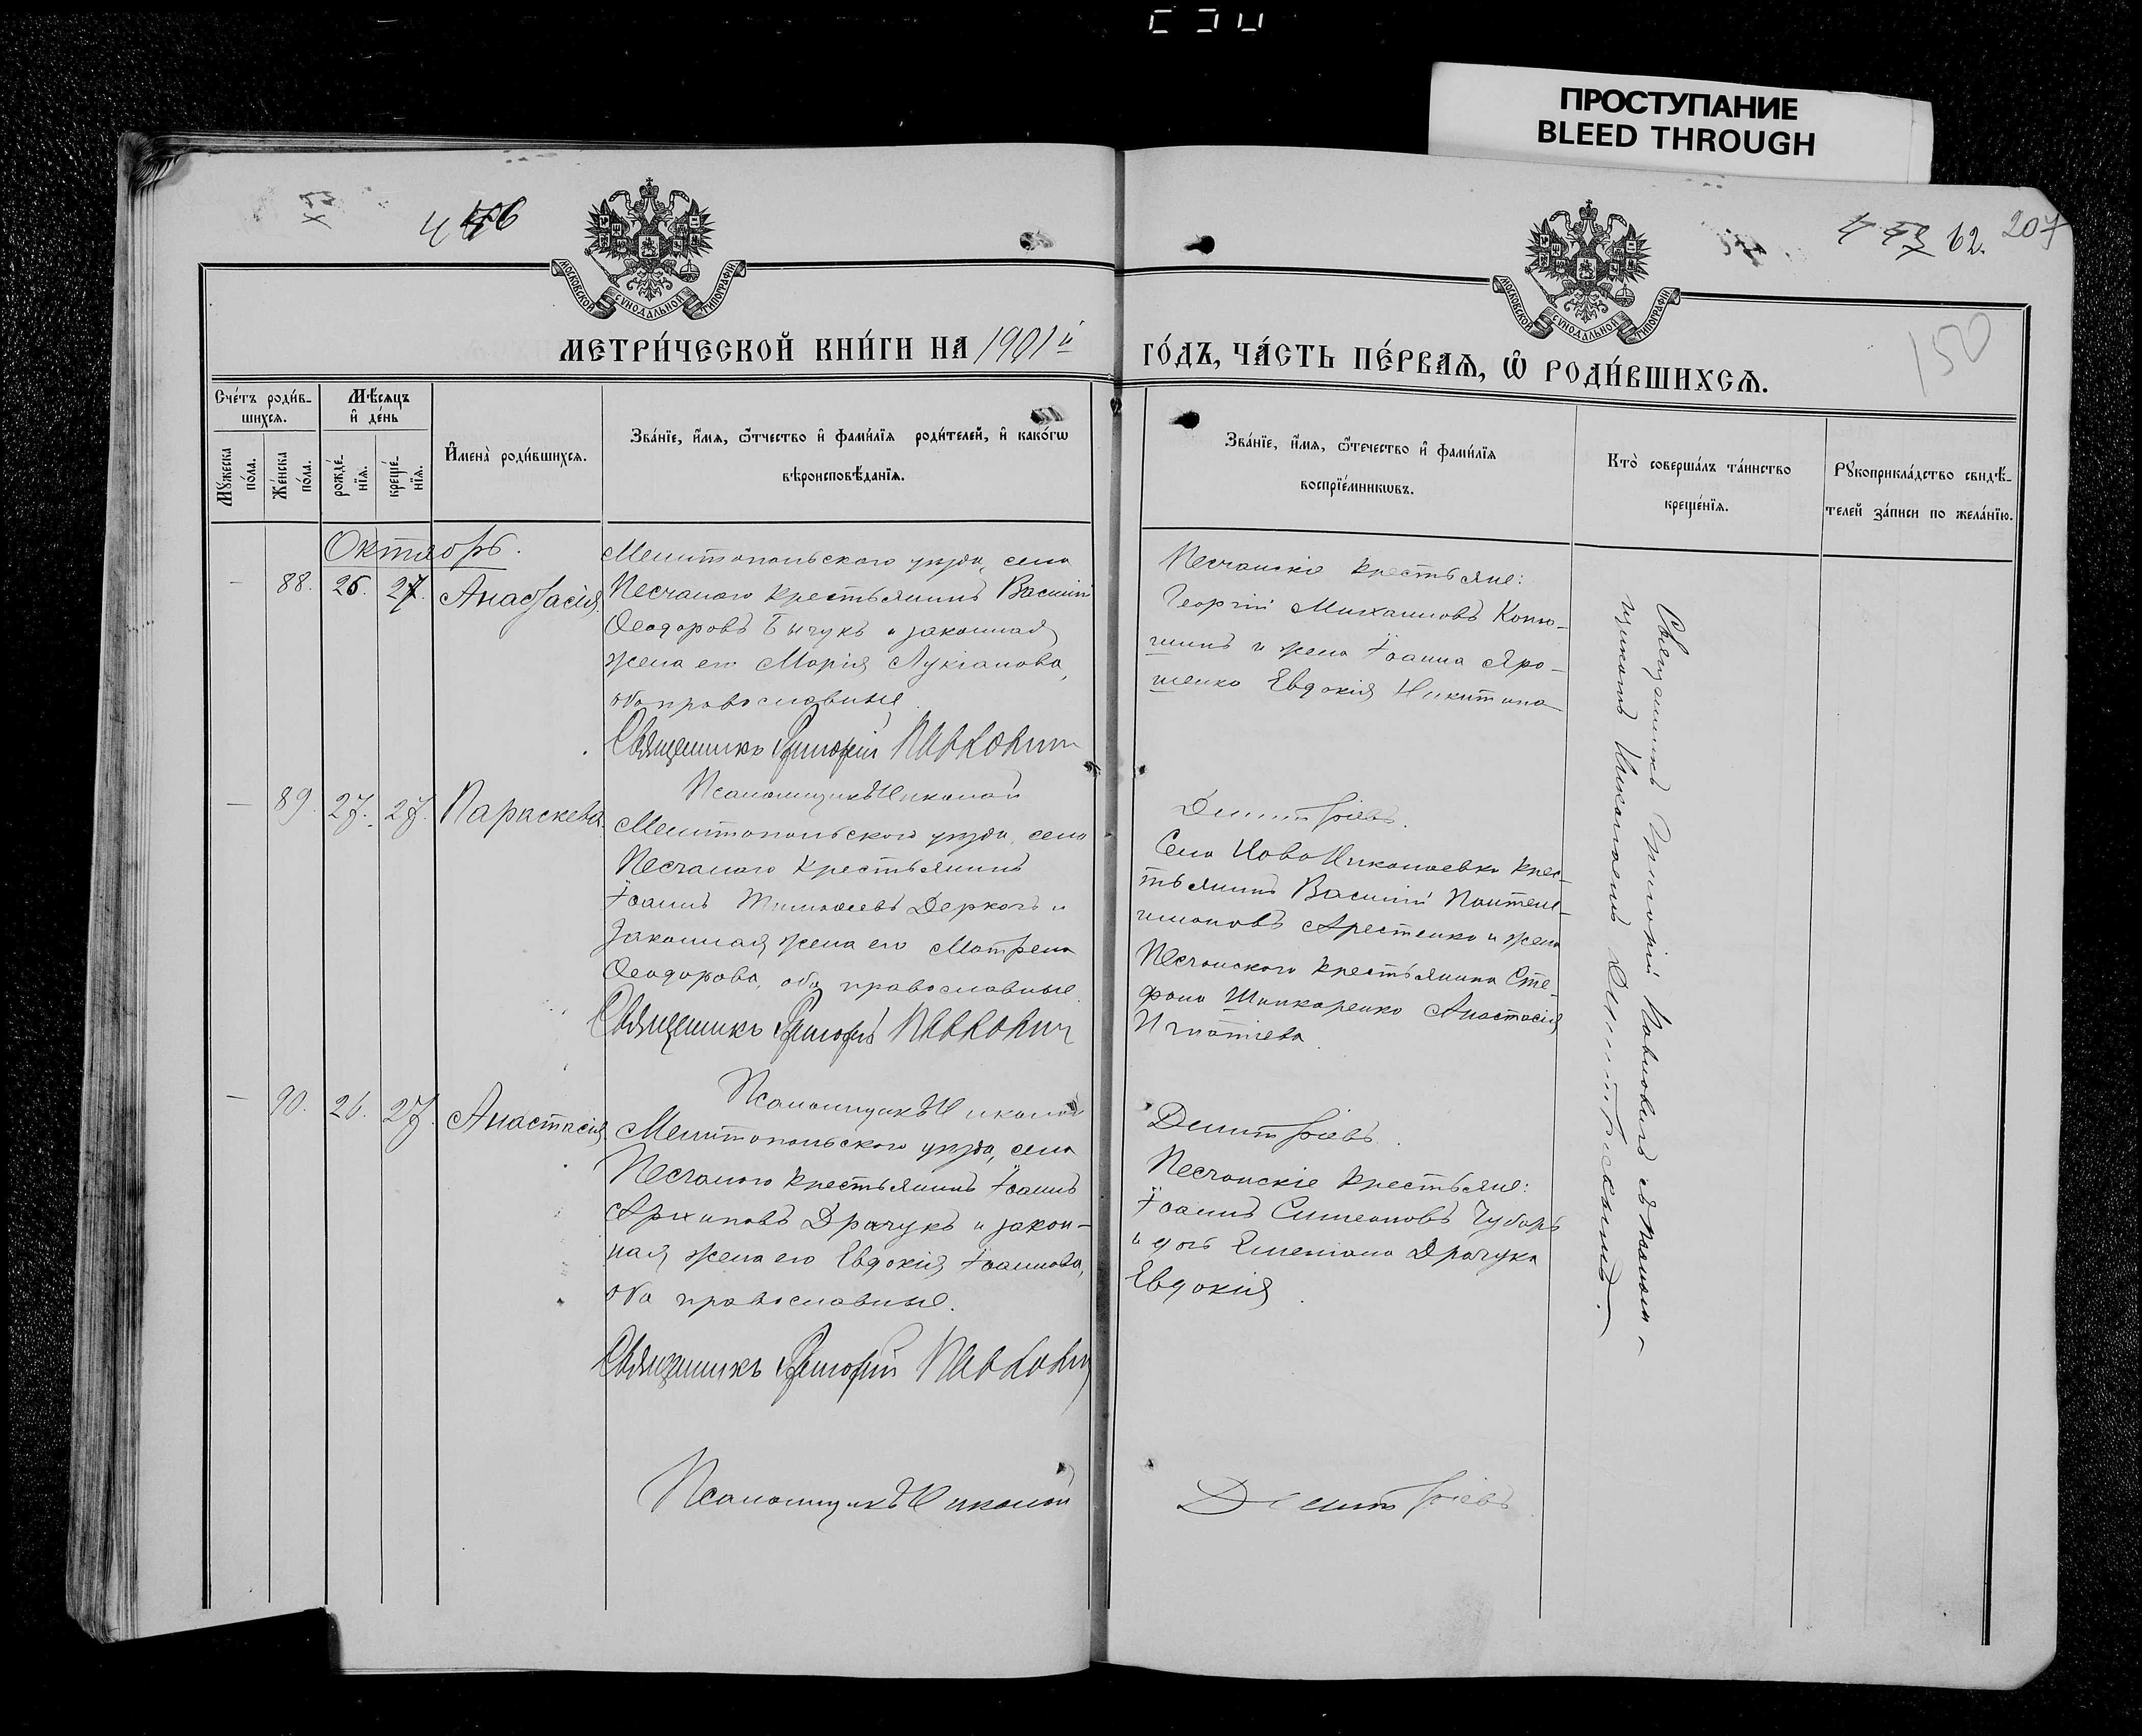 ПРОСТУПАНИЕ
BLEED THROUGH
62.
207
150
МОСКОВСКОЙ СѴНОДАЛЬНОЙ ТИПОГРАФІИ
МОСКОВСКОЙ СѴНОДАЛЬНОЙ ТИПОГРАФІИ
МЕТРИ́ЧЕСКОЙ КНИ́ГИ НА 1901й
ГО́ДЪ, ЧА́СТЬ ПЕ́РВАѦ, Ѽ РОДИ́ВШИХСѦ.
Сче́тъ роди́в-
шихсѧ.
Мѣ́сѧцъ
и҆ де́нь
Мꙋ́жеска
по́ла.
Же́нска
по́ла.
рожде́-
нїѧ.
креще́-
нїѧ.
И҆мена̀ роди́вшихсѧ.
Зва́нїе, и҆́мѧ, ѻ҆́тчество и҆ фами́лїѧ роди́телей, и҆ како́гѡ
вѣроисповѣ́данїѧ.
Зва́нїе, и҆́мѧ, ѻ҆́течество и҆ фами́лїѧ
воспрїе́мникѡвъ.
Кто̀ соверша́лъ та́инство
креще́нїѧ.
Рꙋкоприкла́дство свидѣ́-
телей за́писи по жела́нїю.
Октябрь.
— 88. 26. 27. Анастасія.
Мелитопольскаго уѣзда, села
Песчанаго крестьянинъ Василій
Ѳеодоровъ Бычукъ и законная
жена его Марія Лукіанова,
оба православные.
Священникъ Григорій Павловичъ
Псаломщикъ Николай
Песчанскіе крестьяне:
Георгій Михаиловъ Коню-
шинъ и жена Іоанна Яро-
шенко Евдокія Никитина
Димитріевъ.
— 89. 27. 27. Параскева.
Мелитопольскаго уѣзда, села
Песчанаго крестьянинъ
Іоаннъ Тимоѳеевъ Деркачъ и
законная жена его Матрена
Ѳеодорова, оба православные
Священникъ Григорій Павловичъ
Псаломщикъ Николай
Села Ново Николаевки крес-
тьянинъ Василій Пантеле-
имоновъ Арестенко и жена
Песчанского крестьянина Сте-
фана Шинкаренко Анастасія
Игнатіева.
Димитріевъ.
— 90. 26. 27. Анастасія.
Мелитопольскаго уѣзда, села
Песчанаго крестьянинъ Іоаннъ
Архиповъ Драчукъ и закон-
ная жена его Евдокія Іоаннова,
оба православные.
Священникъ Григорій Павловичъ
Псаломщикъ Николай
Песчанскіе крестьяне:
Іоаннъ Симеоновъ Чубарь
и дочь Емеліана Драчука
Евдокія.
Димитріевъ
Священникъ Григорій Павловичъ съ Псалом-
щикомъ Николаемъ Димитріевымъ.